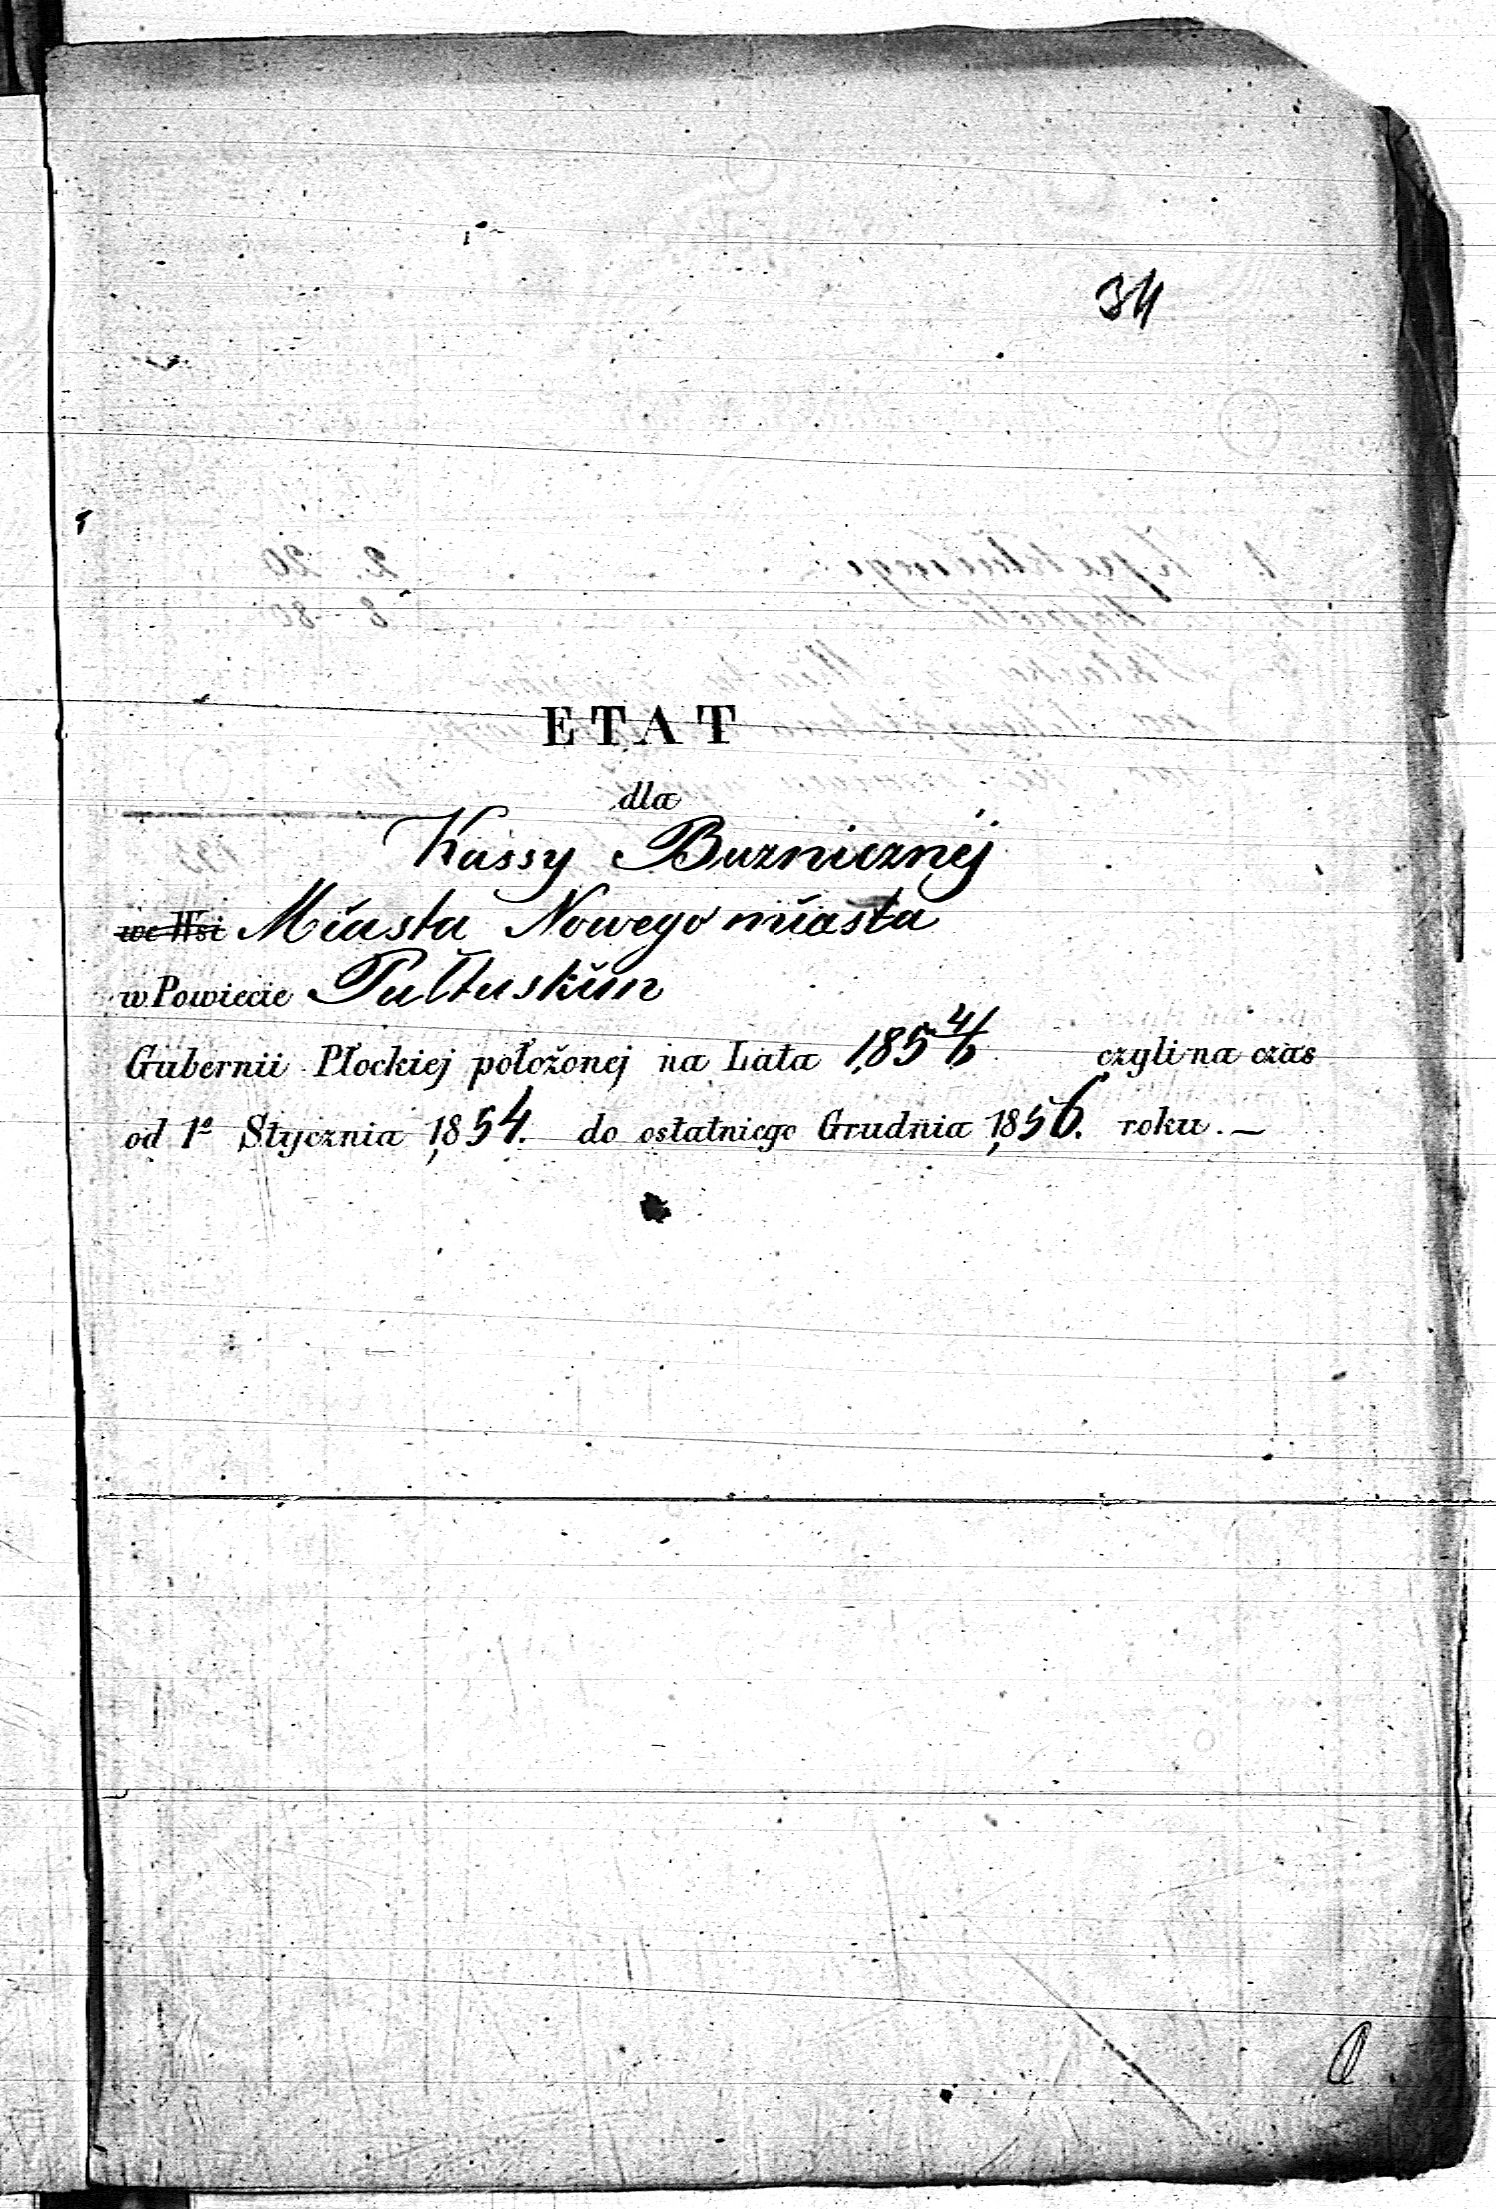 34
ETAT
dla
Kassy Buznicznéj
we Wsi Miasta Nowego miasta
w Powiecie Pułtuskim
Gubernii Płockiej położonej na Lata 1854/6 czyli na czas
od 1º Stycznia 1854. do ostatniego Grudnia 1856. roku. —